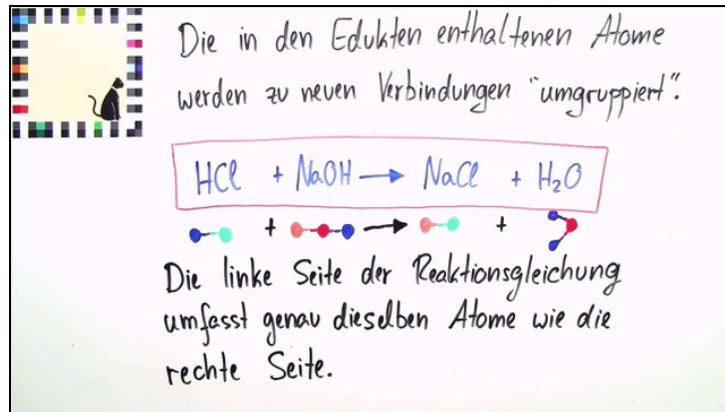 Die in den Edukten enthaltenen Atome
werden zu neuen Verbindungen "umgruppiert".
HCl + NaOH → NaCl + H₂O
+ → +
Die linke Seite der Reaktionsgleichung
umfasst genau dieselben Atome wie die
rechte Seite.